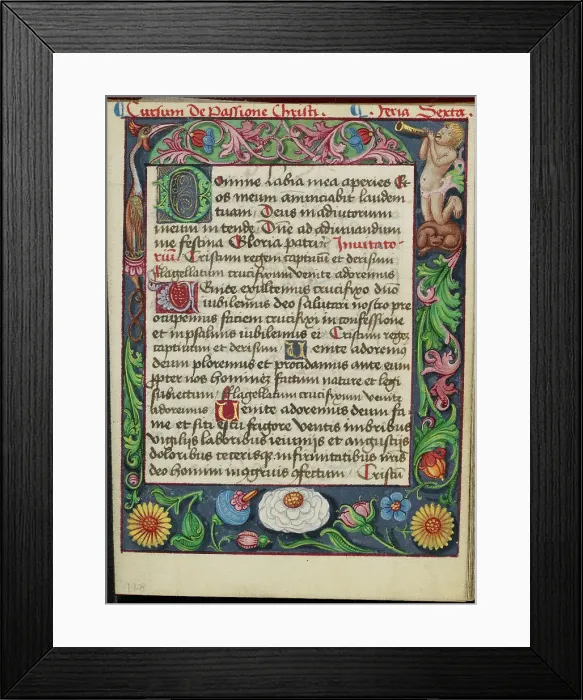 Cursum De Passione Christi. Feria Sexta.
Domine labia mea aperies Et
os meum annunciabit laudem
tuam. Deus in adiutorium
meum intende Dne ad adiuuandum
me festina Gloria patri Inuitato-
riu Cristum regem captiuum et derisum
flagellatum crucifixum venite adoremus
Venite exultemus crucifixo duo
iubilemus deo salutari nostro pre
occupemus faciem crucifixi in confessione
et in psalmis iubilemus ei Cristum regem
captiuum et derisum Venite adoremus
deum ploremus et procidamus ante eum
propter nos hominez factum nature et legi
subiectum Flagellatum crucifixum venite
adoremus Venite adoremus deum fa-
me et siti estu frigore ventis imbribus
vigilijs laboribus ieiunijs et angustijs
doloribus ceterisq infirmitatibus nris
deo homini effectum Cristu